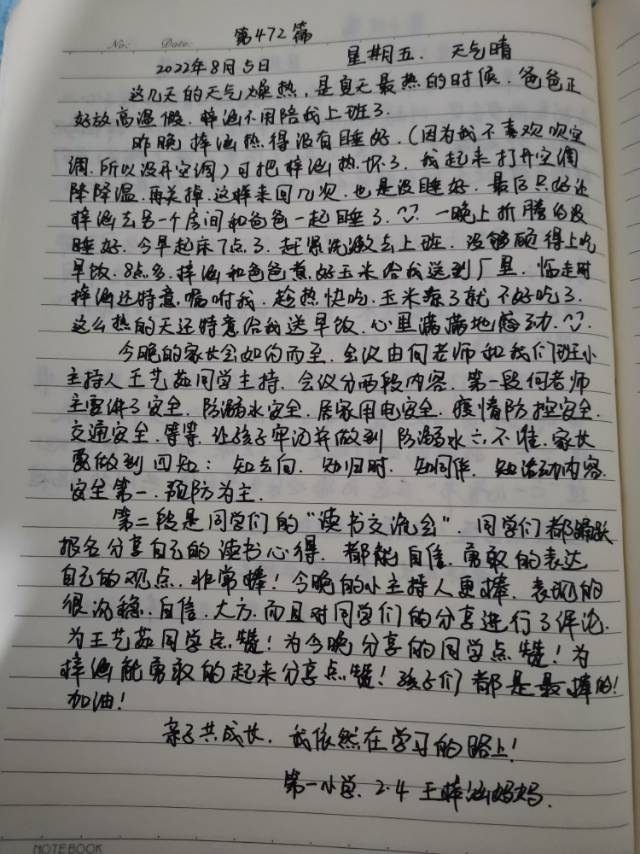 第472篇
No: Date:
2022年8月5日 星期五. 天气晴
这几天的天气爆热,是夏天最热的时候.爸爸正
好放高温假.梓涵不用陪我上班了.
昨晚梓涵热得没有睡好.(因为我不喜欢吹空
调.所以没开空调)可把梓涵热坏了.我起来打开空调
降降温.再关掉.这样来回几次.也是没睡好.最后只好让
梓涵去另一个房间和爸爸一起睡了. 一晚上折腾的没
睡好.今早起床7点了.赶紧洗漱去上班.没够顾得上吃
早饭.8点多.梓涵和爸爸煮好玉米给我送到厂里.临走时
梓涵还特意嘱咐我.趁热快吃.玉米凉了就不好吃了.
这么热的天还特意给我送早饭.心里满满地感动.
今晚的家长会如约而至.会议由何老师和我们班小
主持人王艺茹同学主持.会议分两段内容.第一段何老师
主要讲了安全.防溺水安全.居家用电安全.疫情防控安全.
交通安全.等等.让孩子牢记并做到防溺水六不准.家长
要做到四知:知去向.知归时.知同伴.知活动内容.
安全第一.预防为主.
第二段是同学们的“读书交流会”.同学们都踊跃
报名分享自己的读书心得.都能自信.勇敢的表达
自己的观点.非常棒!今晚的小主持人更棒.表现的
很沉稳.自信.大方.而且对同学们的分享进行了评论.
为王艺茹同学点赞!为今晚分享的同学点赞!为
梓涵能勇敢的起来分享点赞!孩子们都是最棒的!
加油!
亲子共成长.我依然在学习的路上!
第一小学.2.4王梓涵妈妈.
NOTEBOOK